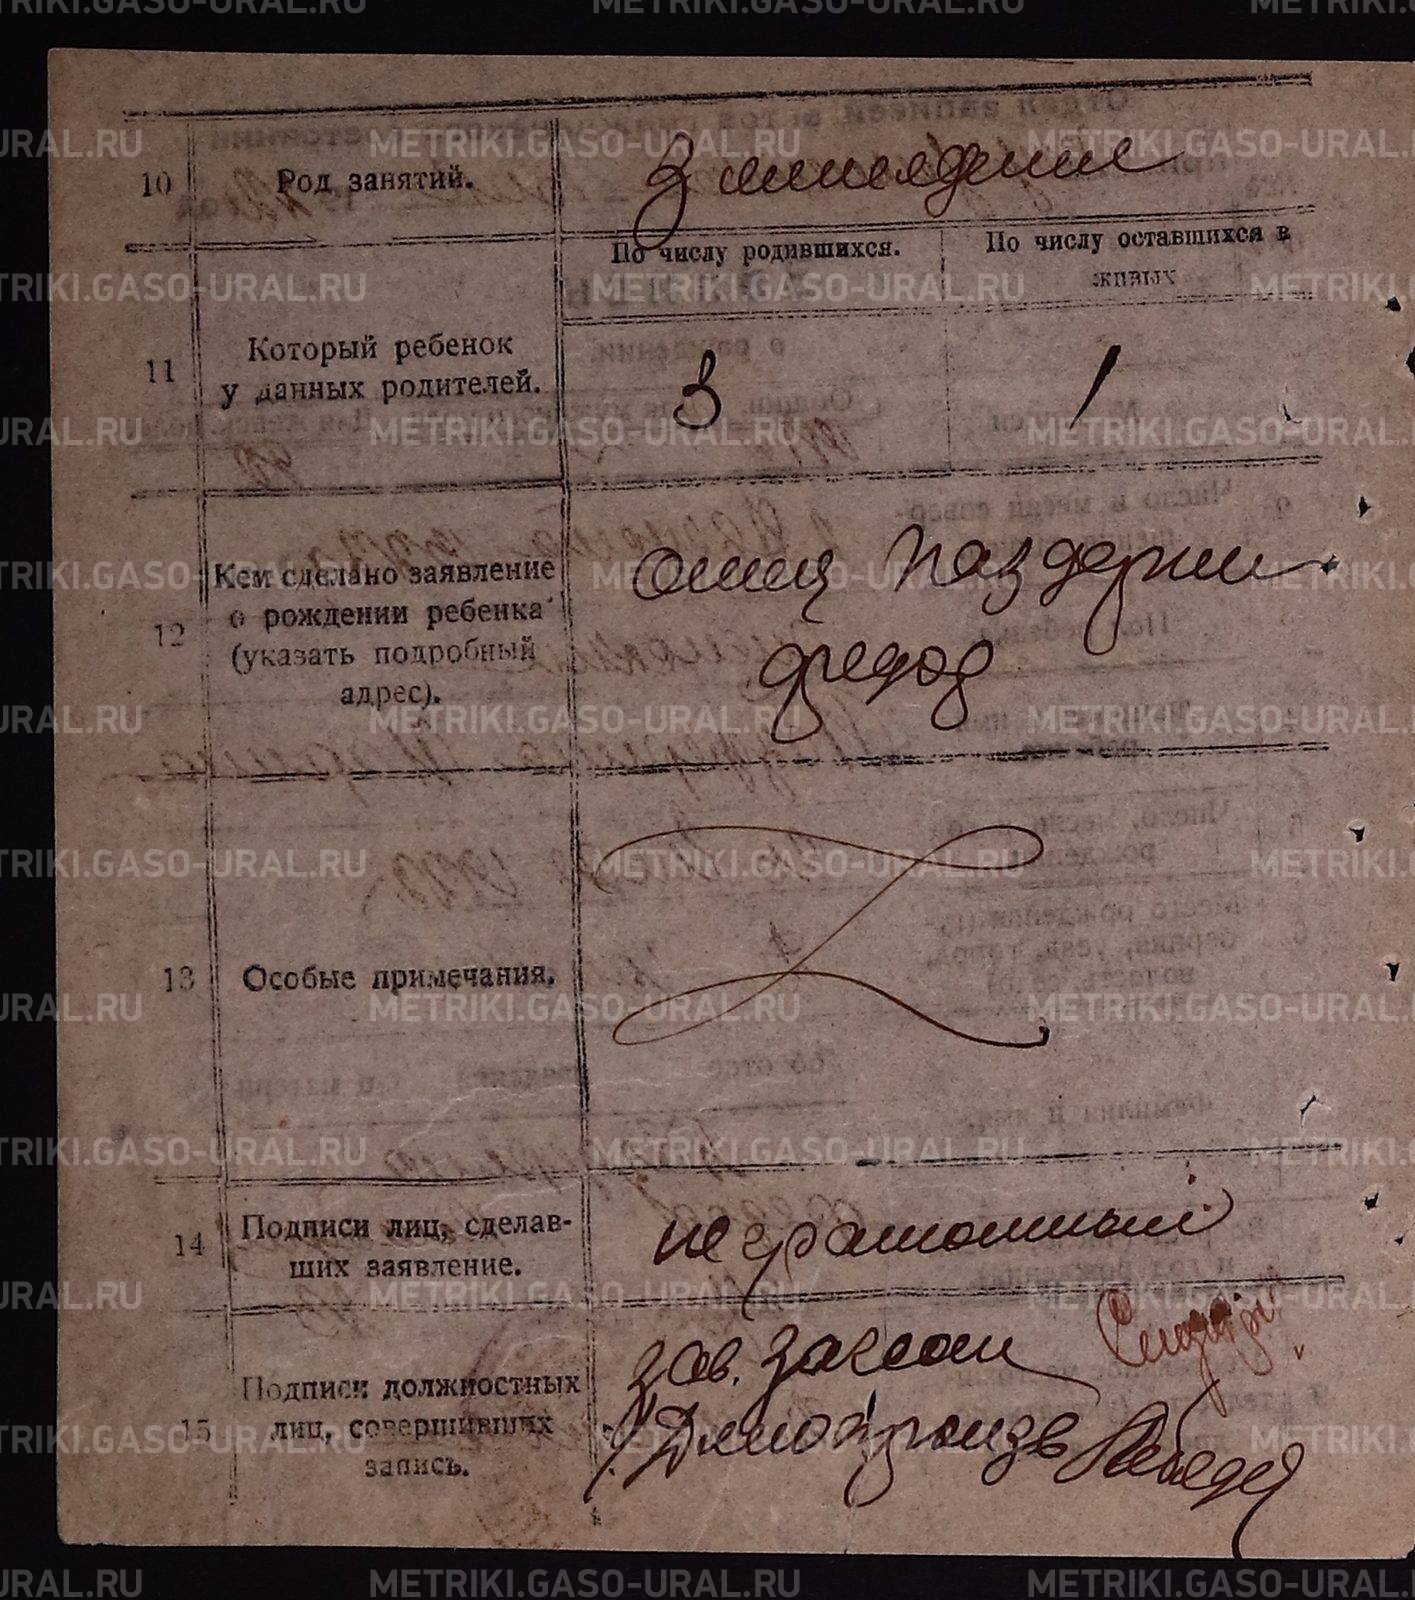 10 Род занятий. Земледелие
11 Который ребенок у данных родителей.
По числу родившихся. По числу оставшихся в живых
3 1
12 Кем сделано заявление
о рождении ребенка
(указать подробный
адрес).
Отец Паздерин
Федор
13 Особые примечания.
14 Подписи лиц, сделав-
ших заявление.
неграмотный
15 Подписи должностных
лиц, совершивших
запись.
Зав. Загсом
Делопроизв
METRIKI.GASO-URAL.RU